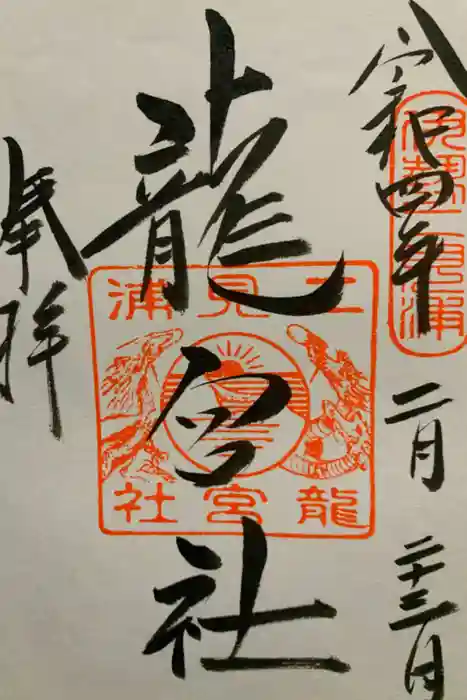 令和四年二月二十三日
伊勢二見浦
龍宮社
二見浦
龍宮社
奉拝